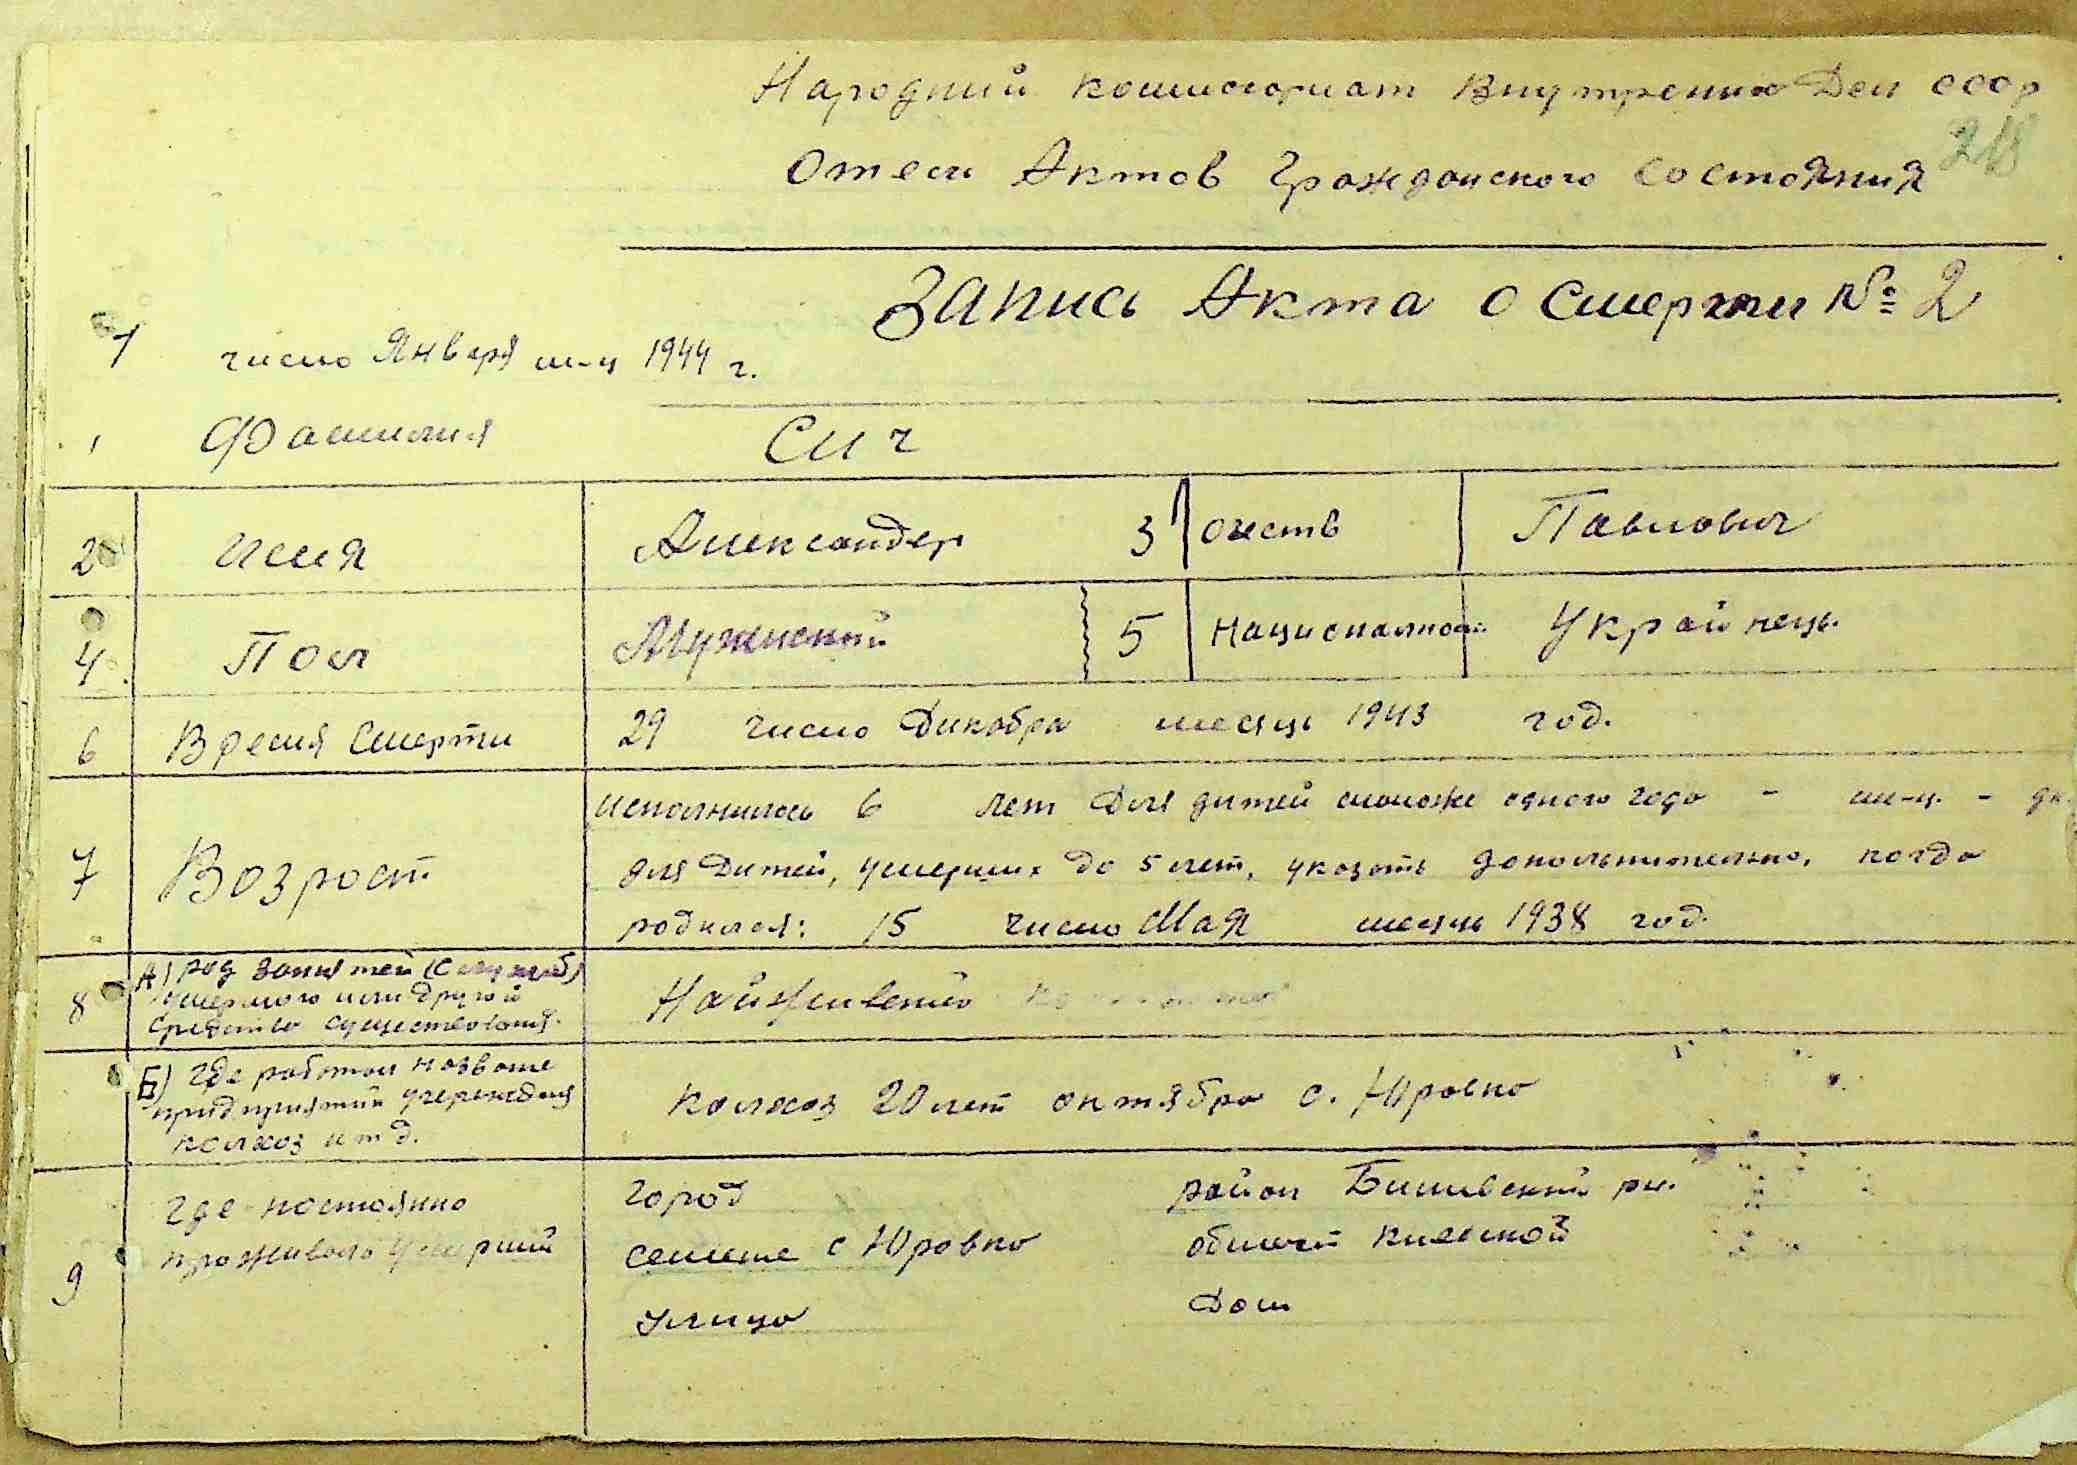 Народний комиссориат Внутрених Дел СССР
218
Отдел Актов Гражданского Состояния
Запись Акта о Смерти № 2
1 число Января м-ц 1944 г.
1 Фамилия Сич
2 Имя Александер 3 Очеств Павлович
4 Пол Мужиский 5 Национально Украйнець
6 Время Смерти 29 число Дикабра месяць 1943 год.
7 Возрост Исполнилось 6 лет Для дитей моложе одного года - м-ц. - дн
для Дитей, умерших до 5 лет, указать дополнительно, когда
родился: 15 число Мая месяць 1938 год.
8 А) род занятей (Служеб)
умерлого или другой
средство существования.
На иждивению
Б) где работал название
придприятий учереждения
колхоз и т д.
Колхоз 20 лет октября с. Юровка
9 где постоянно
проживал умерший
город район Бишивский рн.
селение с Юровка област Киевской
улица Дом